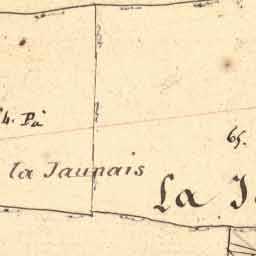 4. Pà
65.
la Jaunais
La J